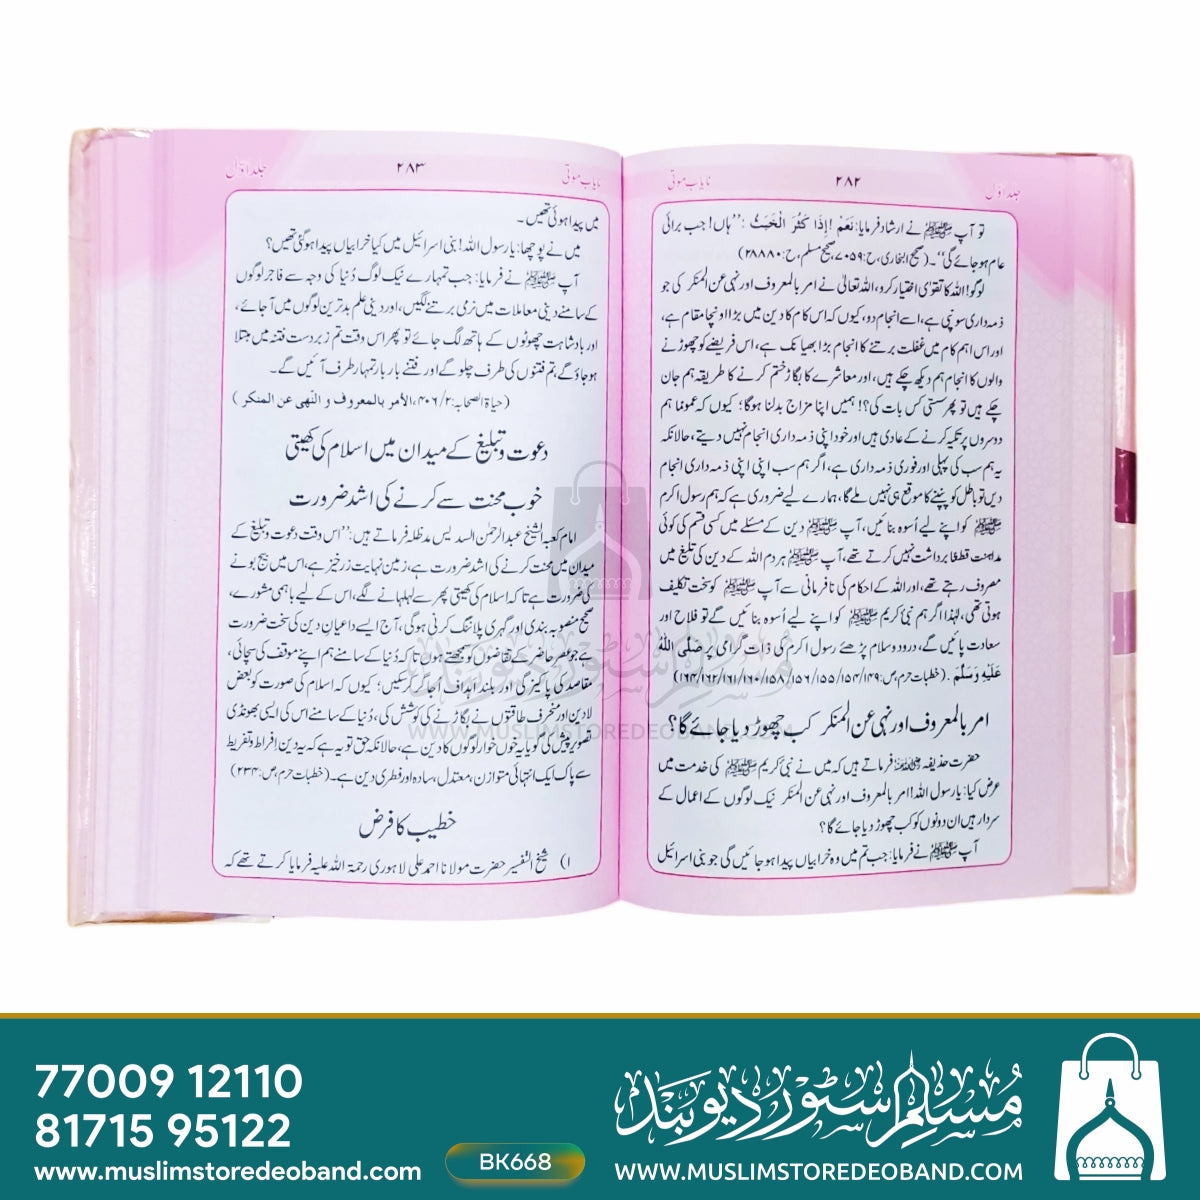 جلد اوّل
۲۸۲
نایاب موتی
تو آپ ﷺ نے ارشاد فرمایا: نَعَمْ! إِذَا كَثُرَ الْخَبَثُ: ”ہاں! جب برائی
عام ہو جائے گی“۔ (صحیح البخاری، ح: ۷۰۵۹، صحیح مسلم، ح: ۲۸۸۸۰)
لوگو! اللہ کا تقویٰ اختیار کرو، اللہ تعالیٰ نے امر بالمعروف اور نہی عن المنکر کی جو
ذمہ داری سونپی ہے، اسے انجام دو، کیوں کہ اس کام کا دین میں بڑا اونچا مقام ہے،
اور اس اہم کام میں غفلت برتنے کا انجام بڑا بھیانک ہے، اس فریضے کو چھوڑنے
والوں کا انجام ہم دیکھ چکے ہیں، اور معاشرے کا بگاڑ ختم کرنے کا طریقہ ہم جان
چکے ہیں تو پھر سستی کس بات کی؟! ہمیں اپنا مزاج بدلنا ہوگا؛ کیوں کہ عموماً ہم
دوسروں پر تکیہ کرنے کے عادی ہیں اور خود اپنی ذمہ داری انجام نہیں دیتے، حالانکہ
یہ ہم سب کی پہلی اور فوری ذمہ داری ہے، اگر ہم سب اپنی اپنی ذمہ داری انجام
دیں تو باطل کو پنپنے کا موقع ہی نہیں ملے گا، ہمارے لیے ضروری ہے کہ ہم رسول اکرم
ﷺ کو اپنے لیے اُسوہ بنائیں، آپ ﷺ دین کے مسئلے میں کسی قسم کی کوئی
مداہنت قطعاً برداشت نہیں کرتے تھے، آپ ﷺ ہر دم اللہ کے دین کی تبلیغ میں
مصروف رہتے تھے، اور اللہ کے احکام کی نافرمانی سے آپ ﷺ کو سخت تکلیف
ہوتی تھی، لہٰذا اگر ہم نبی کریم ﷺ کو اپنے لیے اُسوہ بنائیں گے تو فلاح اور
سعادت پائیں گے، درود و سلام پڑھئے رسول اکرم کی ذات گرامی پر صَلَّى اللهُ
عَلَيْهِ وَسَلَّمَ۔ (خطبات حرم، ص: ۱۴۹/۱۵۴/۱۵۵/۱۵۶/۱۵۸/۱۶۰/۱۶۱/۱۶۲/۱۶۴)
امر بالمعروف اور نہی عن المنکر کب چھوڑ دیا جائے گا؟
حضرت حذیفہ رضی اللہ عنہ فرماتے ہیں کہ میں نے نبی کریم ﷺ کی خدمت میں
عرض کیا: یا رسول اللہ! امر بالمعروف اور نہی عن المنکر نیک لوگوں کے اعمال کے
سردار ہیں ان دونوں کو کب چھوڑ دیا جائے گا؟
آپ ﷺ نے فرمایا: جب تم میں وہ خرابیاں پیدا ہو جائیں گی جو بنی اسرائیل
نایاب موتی
۲۸۳
جلد اوّل
میں پیدا ہوئی تھیں۔
میں نے پوچھا: یا رسول اللہ! بنی اسرائیل میں کیا خرابیاں پیدا ہو گئی تھیں؟
آپ ﷺ نے فرمایا: جب تمہارے نیک لوگ دُنیا کی وجہ سے فاجر لوگوں
کے سامنے دینی معاملات میں نرمی برتنے لگیں، اور دینی علم بدترین لوگوں میں آ جائے،
اور بادشاہت چھوٹوں کے ہاتھ لگ جائے تو پھر اس وقت تم زبردست فتنہ میں مبتلا
ہو جاؤ گے، تم فتنوں کی طرف چلو گے اور فتنے بار بار تمہار طرف آئیں گے۔
(حیاۃ الصحابہ: ۲/۴۰۶، الأمر بالمعروف و النّهی عن المنکر)
دعوت و تبلیغ کے میدان میں اسلام کی کھیتی
خوب محنت سے کرنے کی اشد ضرورت
امام کعبہ الشیخ عبدالرحمٰن السدیس مدظلہ فرماتے ہیں: ”اس وقت دعوت و تبلیغ کے
میدان میں محنت کرنے کی اشد ضرورت ہے، زمین نہایت زرخیز ہے، اس میں بیج بونے
کی ضرورت ہے تاکہ اسلام کی کھیتی پھر سے لہلہانے لگے، اس کے لیے باہمی مشورے،
صحیح منصوبہ بندی اور گہری پلاننگ کرنی ہوگی، آج ایسے داعیانِ دین کی سخت ضرورت
ہے جو عصر حاضر کے تقاضوں کو سمجھتے ہوں تاکہ دُنیا کے سامنے ہم اپنے موقف کی سچائی،
مقاصد کی پاکیزگی اور بلند اہداف اُجاگر کر سکیں؛ کیوں کہ اسلام کی صورت کو بعض
لا دین اور منحرف طاقتوں نے بگاڑنے کی کوشش کی، دُنیا کے سامنے اس کی ایسی بھونڈی
تصویر پیش کی گویا یہ خوں خوار لوگوں کا دین ہے، حالانکہ حق تو یہ ہے کہ یہ دین افراط و تفریط
سے پاک ایک انتہائی متوازن، معتدل، سادہ اور فطری دین ہے۔ (خطبات حرم، ص: ۲۳۴)
خطیب کا فرض
۱) شیخ التفسیر حضرت مولانا احمد علی لاہوری رحمۃ اللہ علیہ فرمایا کرتے تھے کہ
مسلم سٹور دیوبند
WWW.MUSLIMSTOREDEOBAND.COM
77009 12110
81715 95122
www.muslimstoredeoband.com
BK668
مسلم سٹور دیوبند
WWW.MUSLIMSTOREDEOBAND.COM